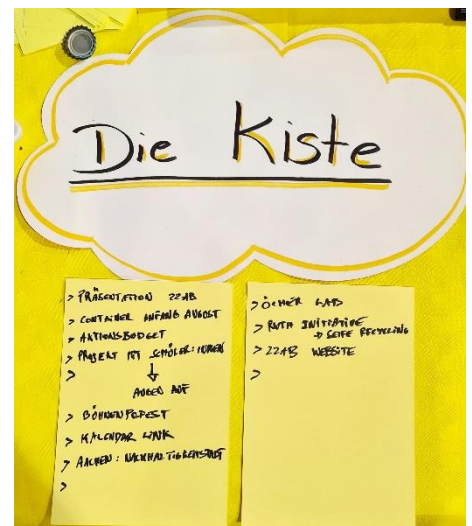 Die Kiste
> PRÄSENTATION 22AB
> CONTAINER ANFANG AUGUST
> AKTIONSBUDGET
> PROJEKT MIT SCHÜLER:INNEN
>
↓
AUGEN AUF
> BÜHNENPODEST
> KALENDAR LINK
> AACHEN: NACHHALTIGKEITSTADT
>
> ÖCHER LAB
> RUTH INITIATIVE
→ SEIFE RECYCLING
> 22AB WEBSITE
>